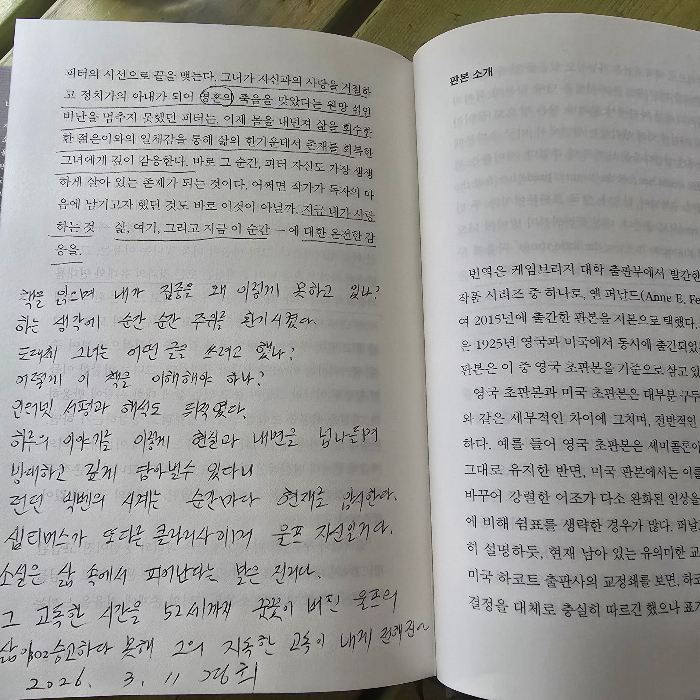 피터의 시선으로 끝을 맺는다. 그녀가 자신과의 사랑을 거절하
고 정치가의 아내가 되어 영혼의 죽음을 맞았다는 원망 섞인
비난을 멈추지 못했던 피터는, 이제 몸을 내던져 삶을 회수한
한 젊은이와의 일체감을 통해 삶의 한가운데서 존재를 회복한
그녀에게 깊이 감응한다. 바로 그 순간, 피터 자신도 가장 생생
하게 살아 있는 존재가 되는 것이다. 어쩌면 작가가 독자의 마
음에 남기고자 했던 것도 바로 이것이 아닐까. 지금 내가 사랑
하는 것 — 삶, 여기, 그리고 지금 이 순간 — 에 대한 온전한 감
응을.
책을 읽으며 내가 집중을 왜 이렇게 못하고 있나?
하는 생각에 순간 순간 주위를 환기시켰다.
도대체 그녀는 어떤 글을 쓰려고 했나?
어떻게 이 책을 이해해야 하나?
인터넷 서평과 해석도 뒤적였다.
하루의 이야기를 이렇게 현실과 내면을 넘나들며
방대하고 깊게 담아낼수 있다니
런던 빅벤의 시계는 순간마다 현재를 암시한다.
셉티머스가 또다른 클라리사이거 울프 자신일거다.
소설은 삶 속에서 피어난다는 말은 진리다.
그 고독한 시간을 52세까지 꿋꿋이 버틴 울프의
삶이 숭고하다 못해 그의 지독한 고독이 내게 전해진
2026. 3. 11
판본 소개
번역은 케임브리지 대학 출판부에서 발간한
작품 시리즈 중 하나로, 앤 퍼널드(Anne E. Fe
여 2015년에 출간한 판본을 저본으로 택했다.
은 1925년 영국과 미국에서 동시에 출간되었
판본은 이 중 영국 초판본을 기준으로 삼고 있
영국 초판본과 미국 초판본은 대부분 구두
와 같은 세부적인 차이에 그치며, 전반적인
하다. 예를 들어 영국 초판본은 세미콜론이
그대로 유지한 반면, 미국 판본에서는 이를
바꾸어 강렬한 어조가 다소 완화된 인상을
에 비해 쉼표를 생략한 경우가 많다. 퍼널
히 설명하듯, 현재 남아 있는 유의미한 교
미국 하코트 출판사의 교정쇄를 보면, 하코
결정을 대체로 충실히 따르긴 했으나 표기